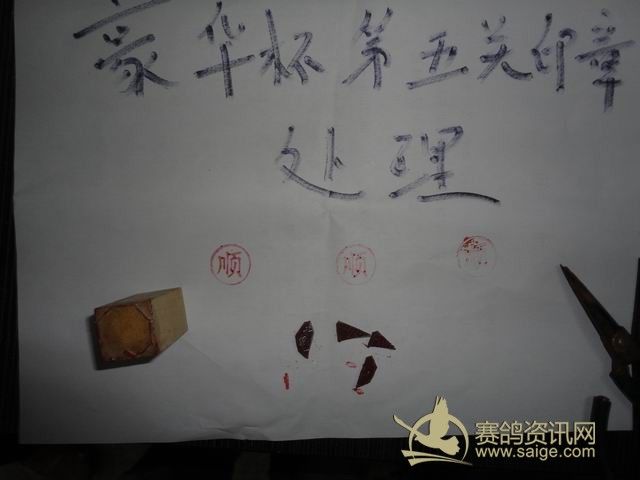 豪华杯第五关印章
处理
顺 顺
赛鸽资讯网
www.saige.com